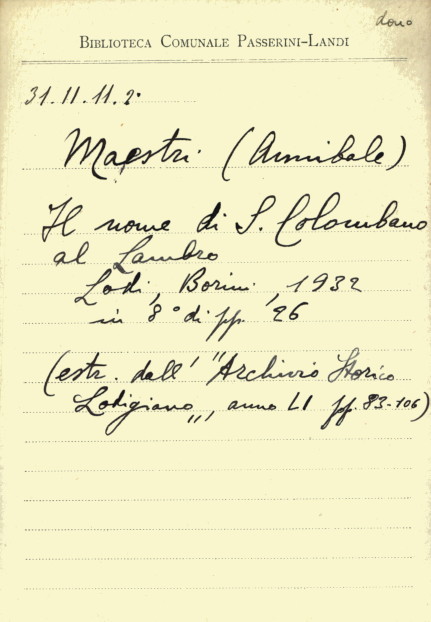 dono
BIBLIOTECA COMUNALE PASSERINI-LANDI
31.II.11.2°
Maestri (Annibale)
Il nome di S. Colombano
al Lambro
Lodi, Borini, 1932
in 8° di pp. 26
(estr. dall' "Archivio Storico
Lodigiano„, anno LI pp. 83-106)